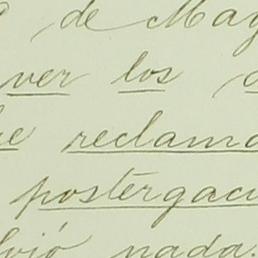 de May
ver los
reclama
postergaci
nada.